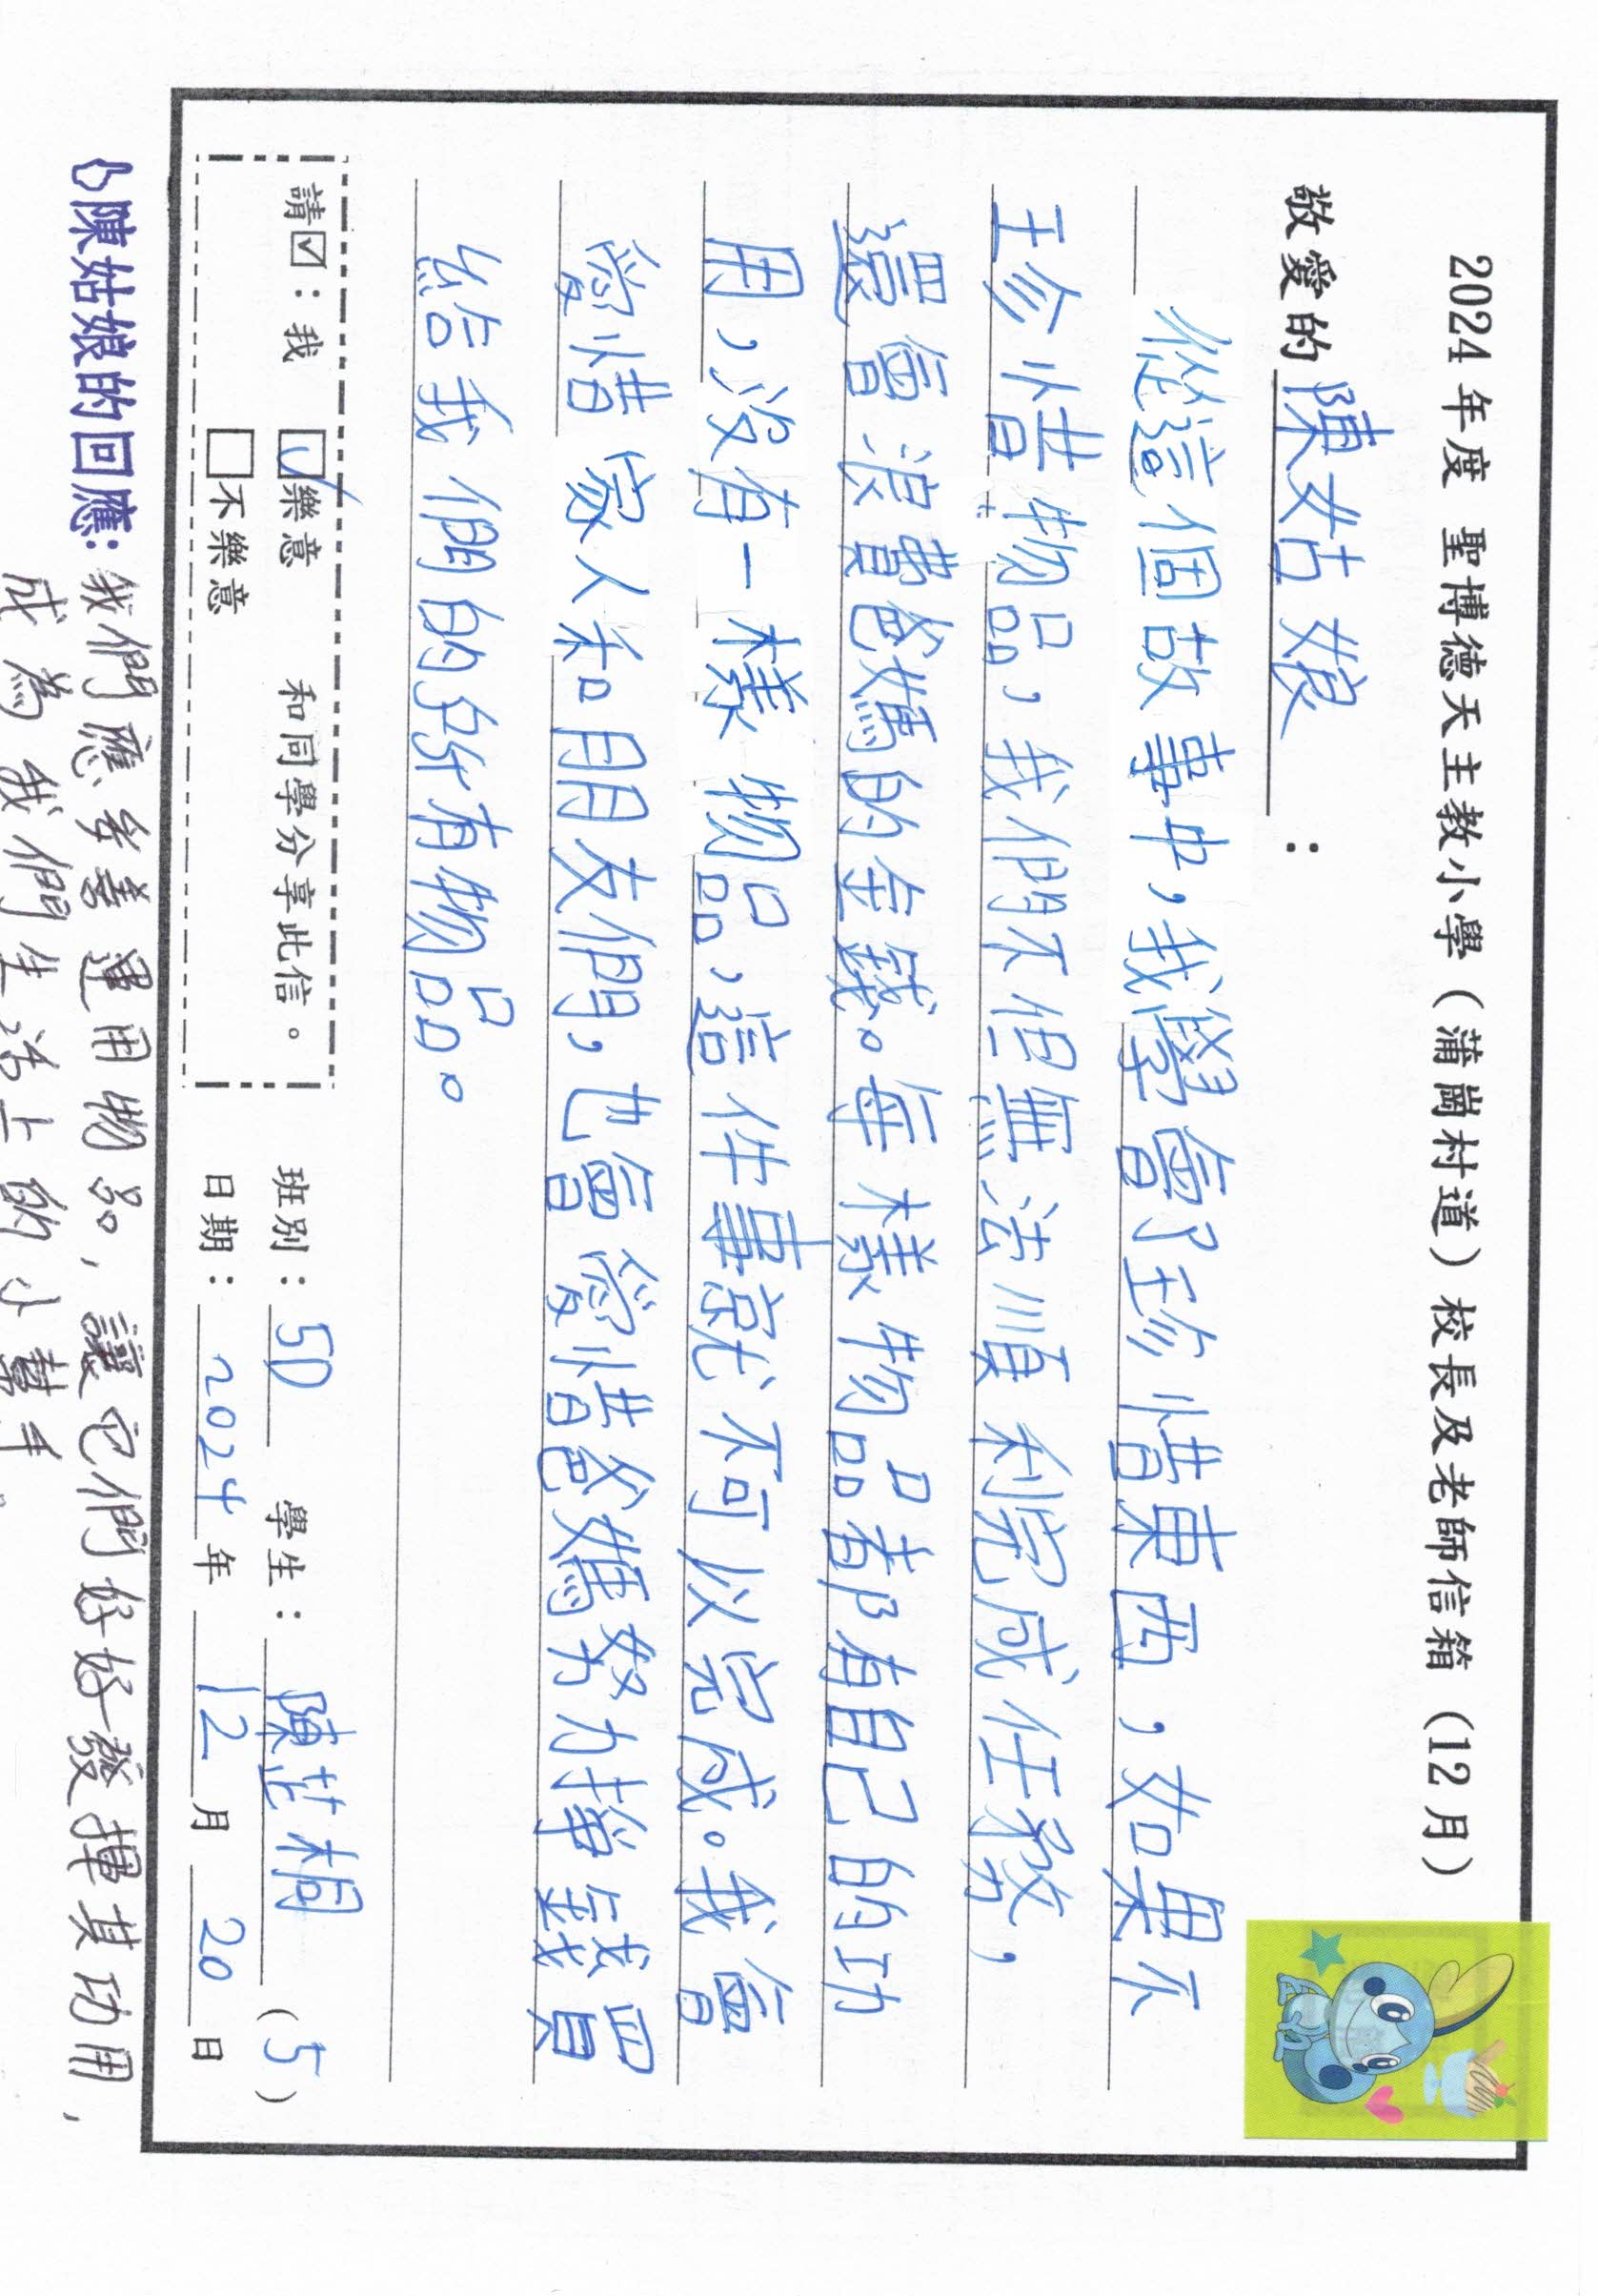 2024 年度 聖博德天主教小學（蒲崗村道）校長及老師信箱（12 月）
敬愛的陳姑娘：
從這個故事中，我學會了珍惜東西，如果不
珍惜物品，我們不但無法順利完成任務，
還會浪費爸媽的金錢。每樣物品都有自己的功
用，沒有一樣物品，這件事就不可以完成。我會
愛惜家人和朋友們，也會愛惜爸媽努力掙錢買
給我們的所有物品。
請☑：我 ☑樂意 和同學分享此信。 班別：5D 學生：陳芷桐（5）
□不樂意 日期：2024 年 12 月 20 日
陳姑娘的回應：我們應多善運用物品，讓它們好好發揮其功用，
成為我們生活上的小幫手。